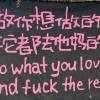 做你想做的
它者都去他妈的
o what you love
nd fuck the re